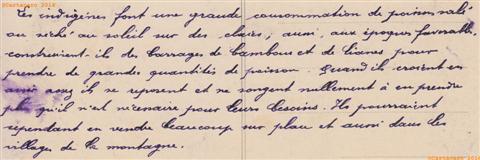 ©Cartacaro 2014
Les indigènes font une grande consommation de poisson salé
ou séché au soleil sur des claies; aussi, aux époques favorables
construisent-ils des barrages de bambous et de lianes pour
prendre de grandes quantités de poisson. Quand ils croient en
avoir assez ils se reposent et ne songent nullement à en prendre
plus qu'il n'est nécessaire pour leurs besoins. Ils pourraient
cependant en vendre beaucoup sur place et aussi dans les
villages de la montagne.
©Cartacaro 2014